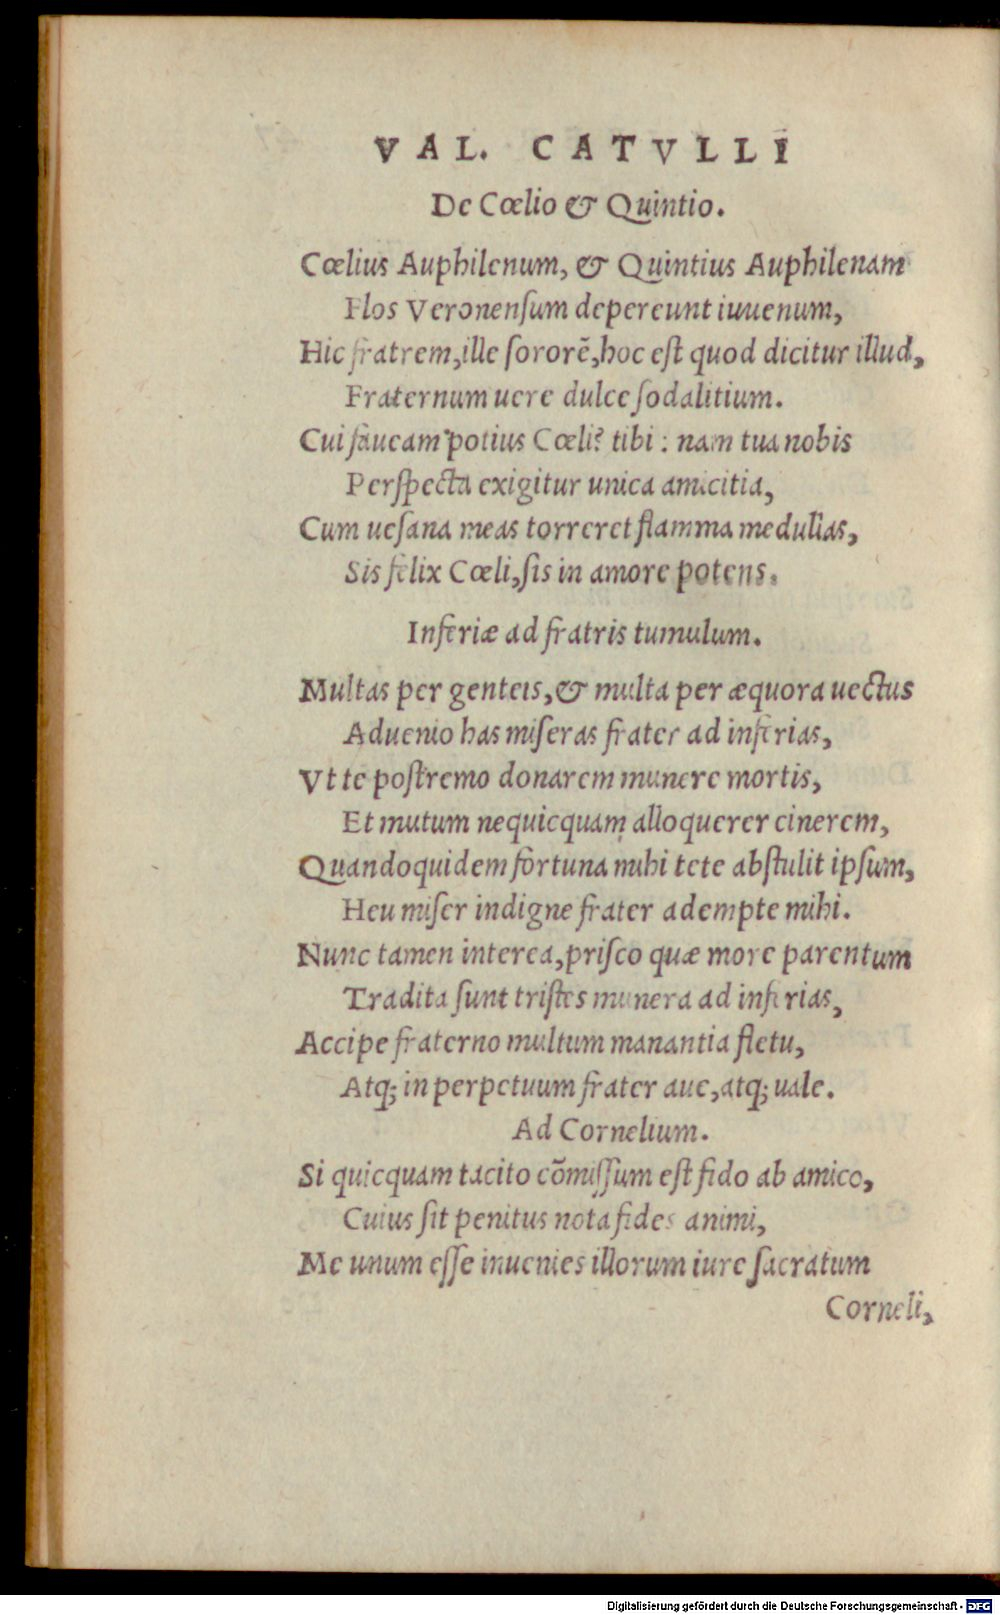 VAL. CATVLLI
De Cœlio & Quintio.
Cœlius Auphilenum, & Quintius Auphilenam
Flos Veronenſum depereunt iuuenum,
Hic fratrem, ille ſororē, hoc eſt quod dicitur illud,
Fraternum uere dulce ſodalitium.
Cui faueam potius Cœli? tibi: nam tua nobis
Perſpecta exigitur unica amicitia,
Cum ueſana meas torreret flamma medullas,
Sis felix Cœli, ſis in amore potens.
Inferiæ ad fratris tumulum.
Multas per genteis, & multa per æquora uectus
Aduenio has miſeras frater ad inferias,
Vt te poſtremo donarem munere mortis,
Et mutum nequicquam alloquerer cinerem,
Quandoquidem fortuna mihi tete abſtulit ipſum,
Heu miſer indigne frater adempte mihi.
Nunc tamen interea, priſco quæ more parentum
Tradita ſunt triſtes munera ad inferias,
Accipe fraterno multum manantia fletu,
Atq; in perpetuum frater aue, atq; uale.
Ad Cornelium.
Si quicquam tacito cōmiſſum eſt fido ab amico,
Cuius ſit penitus nota fides animi,
Me unum eſſe inuenies illorum iure ſacratum
Corneli,
Digitalisierung gefördert durch die Deutsche Forschungsgemeinschaft - DFG